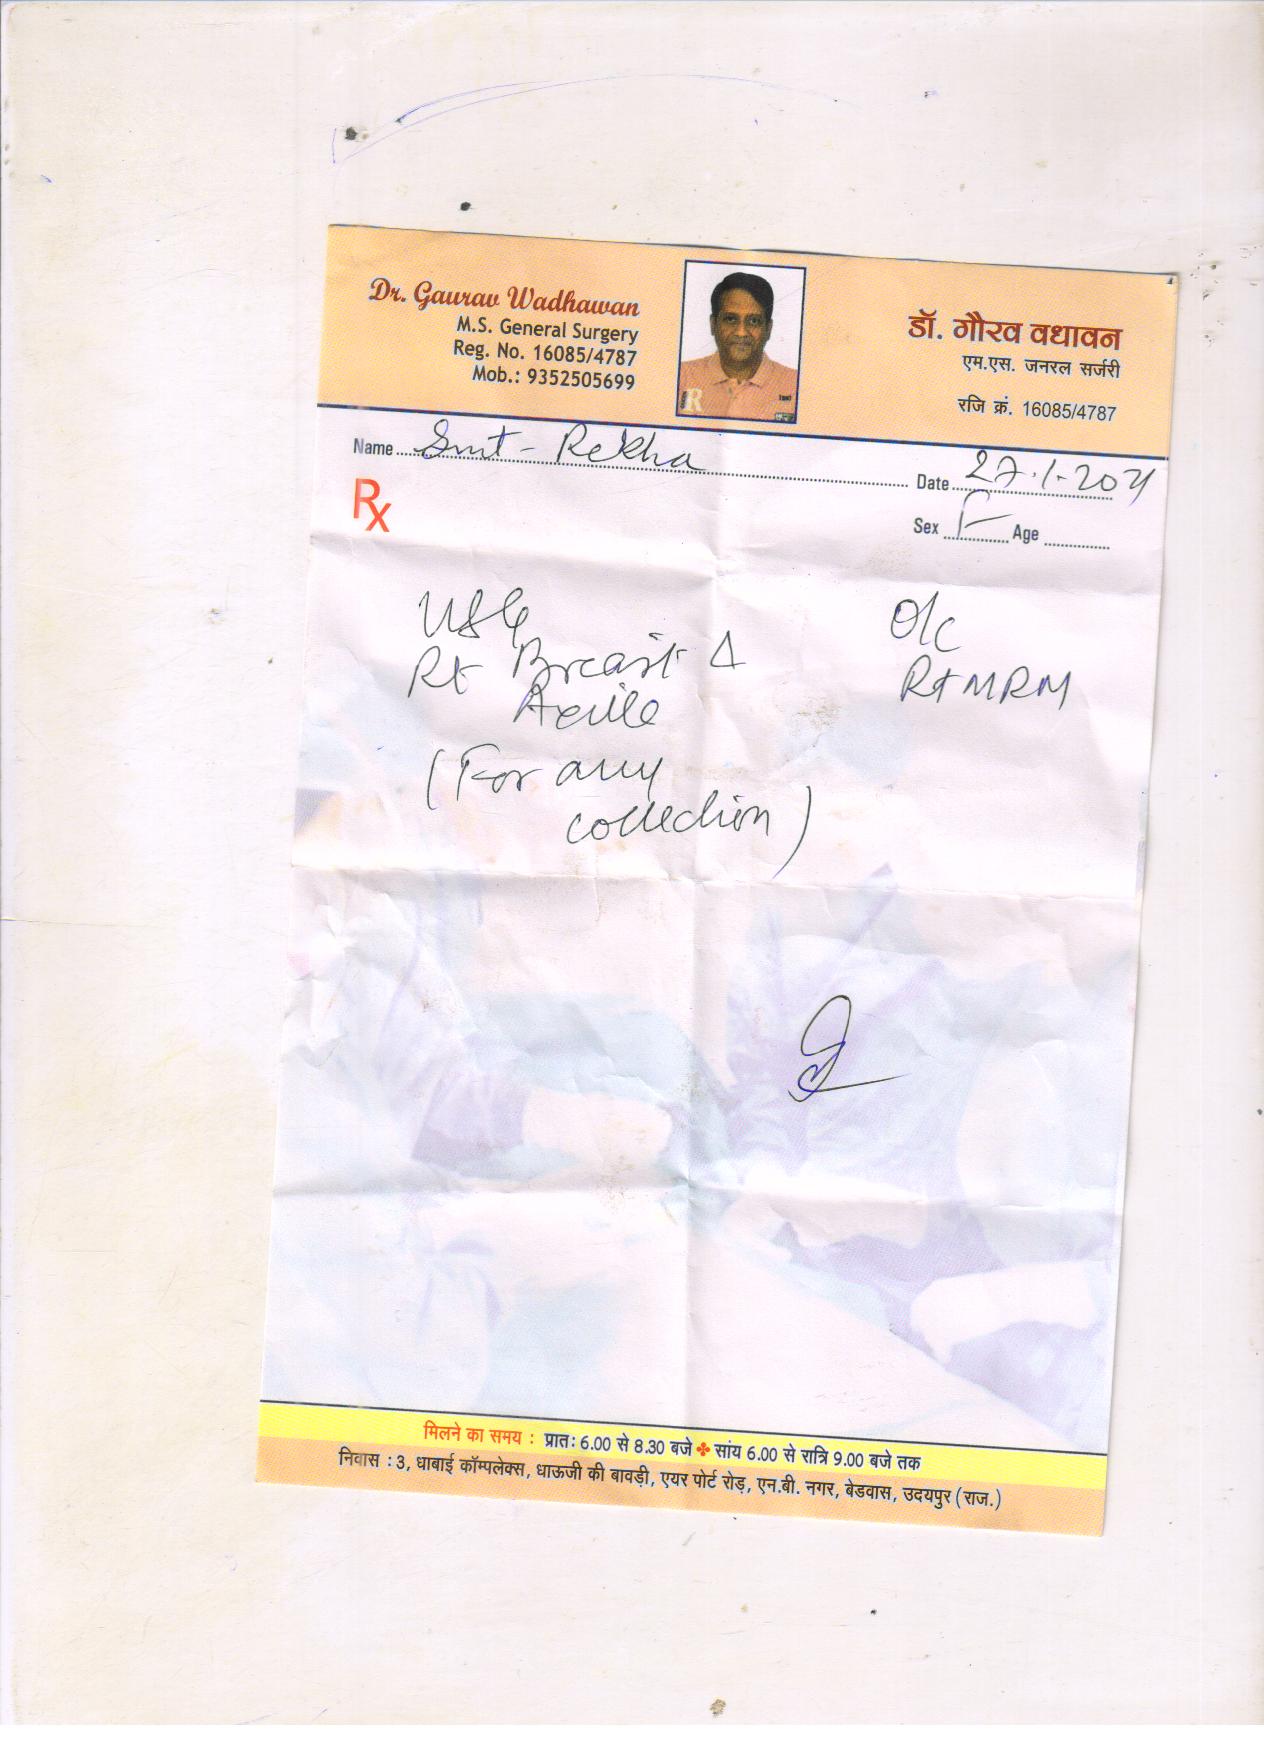 Dr. Gaurav Wadhawan
M.S. General Surgery
Reg. No. 16085/4787
Mob.: 9352505699
डॉ. गौरव वधावन
एम.एस. जनरल सर्जरी
रजि क्रं. 16085/4787
Name Smt - Rekha
Date 27.1.2021
Rx
Sex F Age
USG
Rt Breast &
Axilla
(For any
collection)
O/c
Rt MRM
मिलने का समय : प्रातः 6.00 से 8.30 बजे ✤ सांय 6.00 से रात्रि 9.00 बजे तक
निवास : 3, धाबाई कॉम्पलेक्स, धाऊजी की बावड़ी, एयर पोर्ट रोड़, एन.बी. नगर, बेडवास, उदयपुर (राज.)